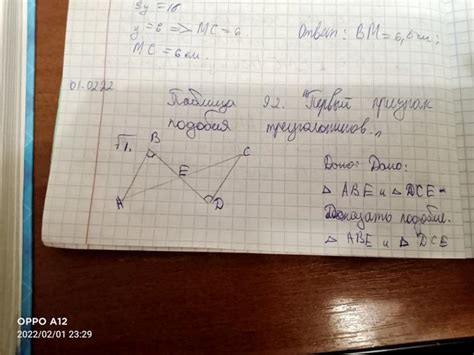 3y = 18
y = 6 => MC = 6
MC = 6 см.
Ответ: BM = 6,5 см;
01.0222
Таблица 9.2. "Первый признак
подобия треугольников.„
П1.
B
C
E
A
D
Дано: Дано:
△ ABE и △ DCE -
Доказать подобие.
△ ABE и △ DCE
OPPO A12
2022/02/01 23:29